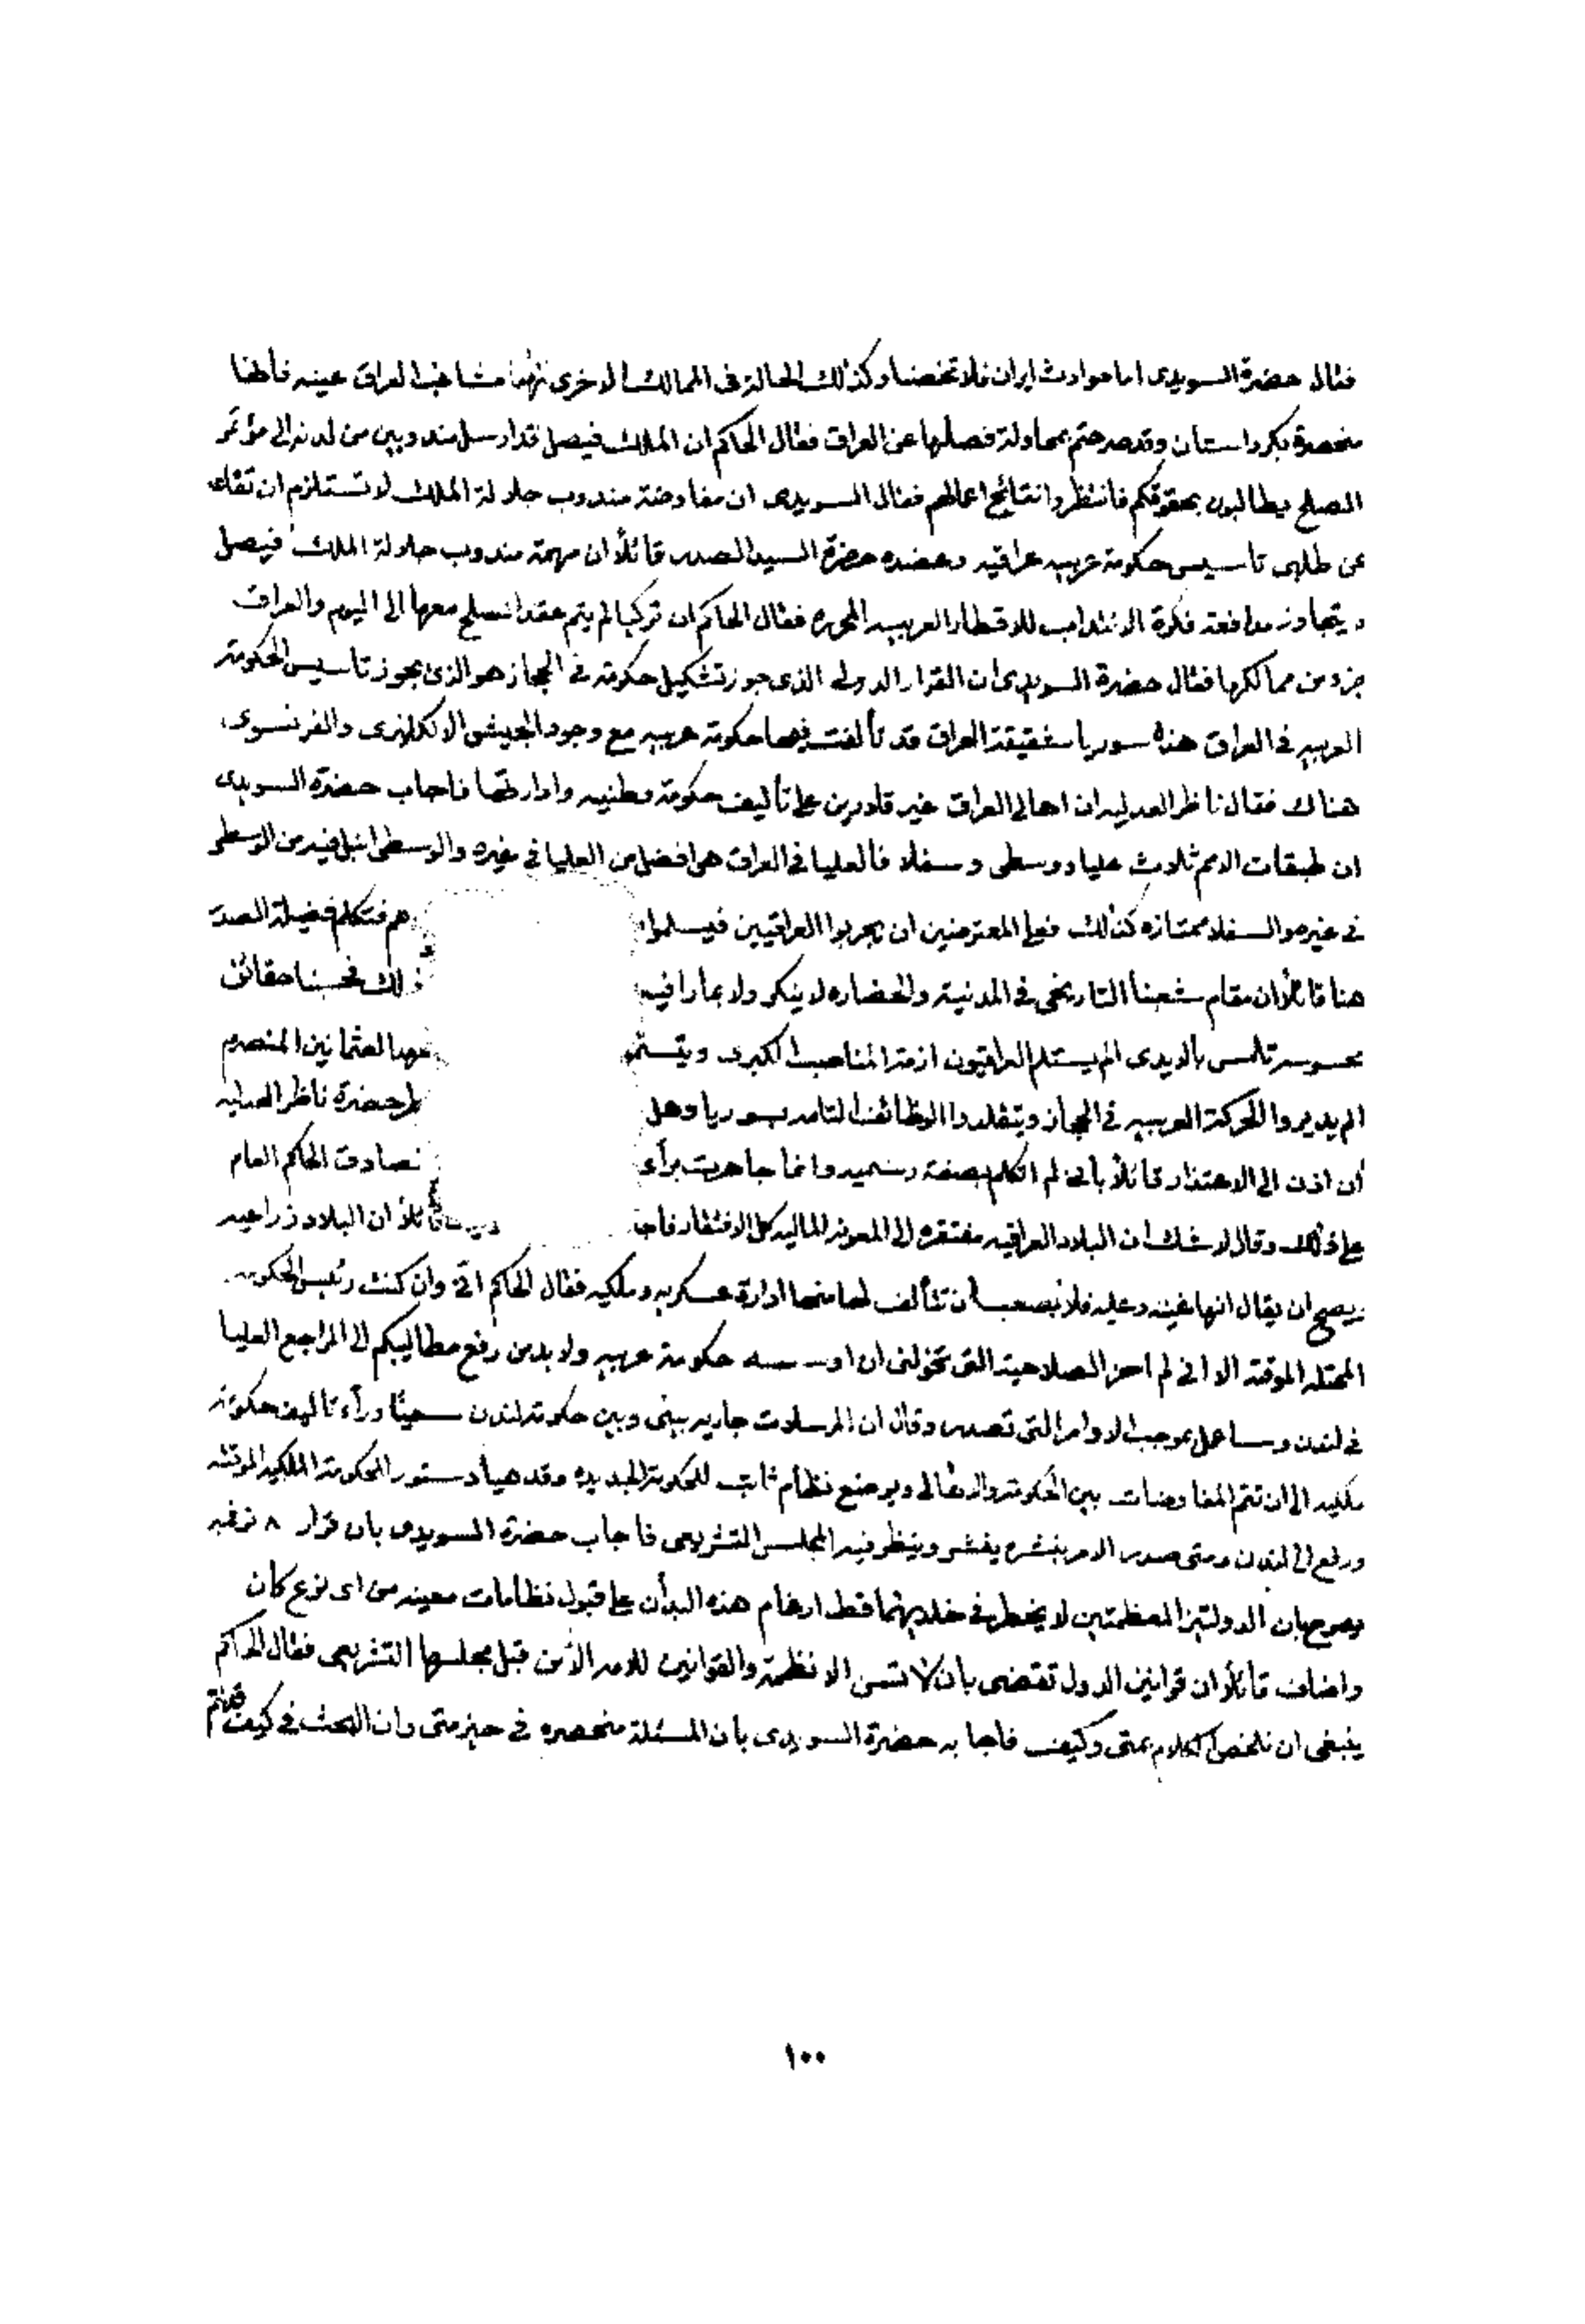 فقال حضرة السويدى اما حوادث ايران فلا تخصنا وكذلك الحالة فى الممالك الاخرى مشاغب العراق عينه فأظنها
منحصرة بكردستان وقد صرحتم بمحاولة فصلها عن العراق فقال الحاكم ان الملك فيصل قد ارسل مندوبين من لدنه الى مؤتمر
الصلح يطالبون بحقوقكم فانتظروا نتائج اعمالهم فقال السويدى ان مفاوضة مندوب جلالة الملك لا تستلزم ان تقاعد
عن طلبى تأسيس حكومة عربيه عراقيه وعضده حضرة السيد الصدر قائلاً ان مهمة مندوب جلالة الملك فيصل
لا يتجاوز مدافعة فكرة الانتداب للاقطار العربيه المحرره فقال الحاكم ان تركيا لم يتم عقد الصلح معها الى اليوم والعراق
جزء من ممالكها فقال حضرة السويدى ان القرار الدولى الذى جوز تشكيل حكومة فى الحجاز هو الذى يجوز تاسيس الحكومة
العربيه فى العراق هذه سوريا شقيقة العراق قد تألفت فيها حكومة عربيه مع وجود الجيش الانكليزى والفرنسوى
هناك فقال ناظر العدليه ان اهالى العراق غير قادرين على تأليف حكومة وطنيه وادارتها فاجاب حضرة السويدى
ان طبقات الامم ثلاث عليا ووسطى وسفلا فالعليا فى العراق هى افضل من العليا فى غيره والوسطى انبل فيه من الوسطى
فى غيره والسفلا ممتازه كذلك فعلى المعترضين ان يجربوا العراقيين فيسلموا هم فتكلم فضيلة الصدر
هنا قائلاً ان مقام شعبنا التاريخى فى المدنية والحضاره لا ينكر ولا يمارا فيه ذلك فحسبنا حقائق
محسوسة تلمس بالايدى الم يستلم العراقيون ازمة المناصب الكبرى عهد العثمانين المنصرم
الم يديروا الحركة العربيه فى الحجاز ويتقلدوا الوظائف التامه بسوريا وهل حضرة ناظر العدليه
أن اذن الى الاعتذار قائلاً بأنى لم اتكلم بصفة رسميه وانما جاهرت برأى فصادق الحاكم العام
على ذلك وقال لا شك ان البلاد العراقيه مفتقره الى المعونه الماليه كل الافتقار فاجا قائلاً ان البلاد زراعيه
يصح ان يقال انها غنيه وعليه فلا يصعب أن تتألف لها منها ادارة عسكريه وملكيه فقال الحاكم انى وان كنت رئيس الحكومه
المحتله الموقته الا انى لم احز الصلاحية التى تخولنى ان اوسسه حكومة عربيه ولا بد من رفع مطاليبكم الى المراجع العليا
فى لندن وساعمل بموجب الاوامر التى تصدر وقال ان المراسلات جاريه بينى وبين حكومة لندن سعياً وراء تأليف حكومة
ملكيه الى ان تتم المفاوضات بين الحكومة والاهالى ويوضع نظام ثابت للحكومة الجديده وقد هيأ دستور الحكومة الملكيه الموقته
ورفع الى لندن ومتى صدر الامر بنشره يفشر وينظر فيه المجلس التشريعى فاجاب حضرة السويدى بان قرار ٨ نوفمبر
يصرح بان الدولتين المعظمتين لا يخطر فى خلديهما قط ارغام هذه البلدان على قبول نظامات معينه من اى نوع كان
واضاف قائلاً ان قوانين الدول تقضى بان لا تسن الانظمة والقوانين للامه الا من قبل مجلسها التشريعى فقال الحاكم
ينبغى ان نلخص الكلام بمتى وكيف فاجابه حضرة السويدى بان المسئلة منحصره فى حيز متى وان البحث فى كيف
١٠٠